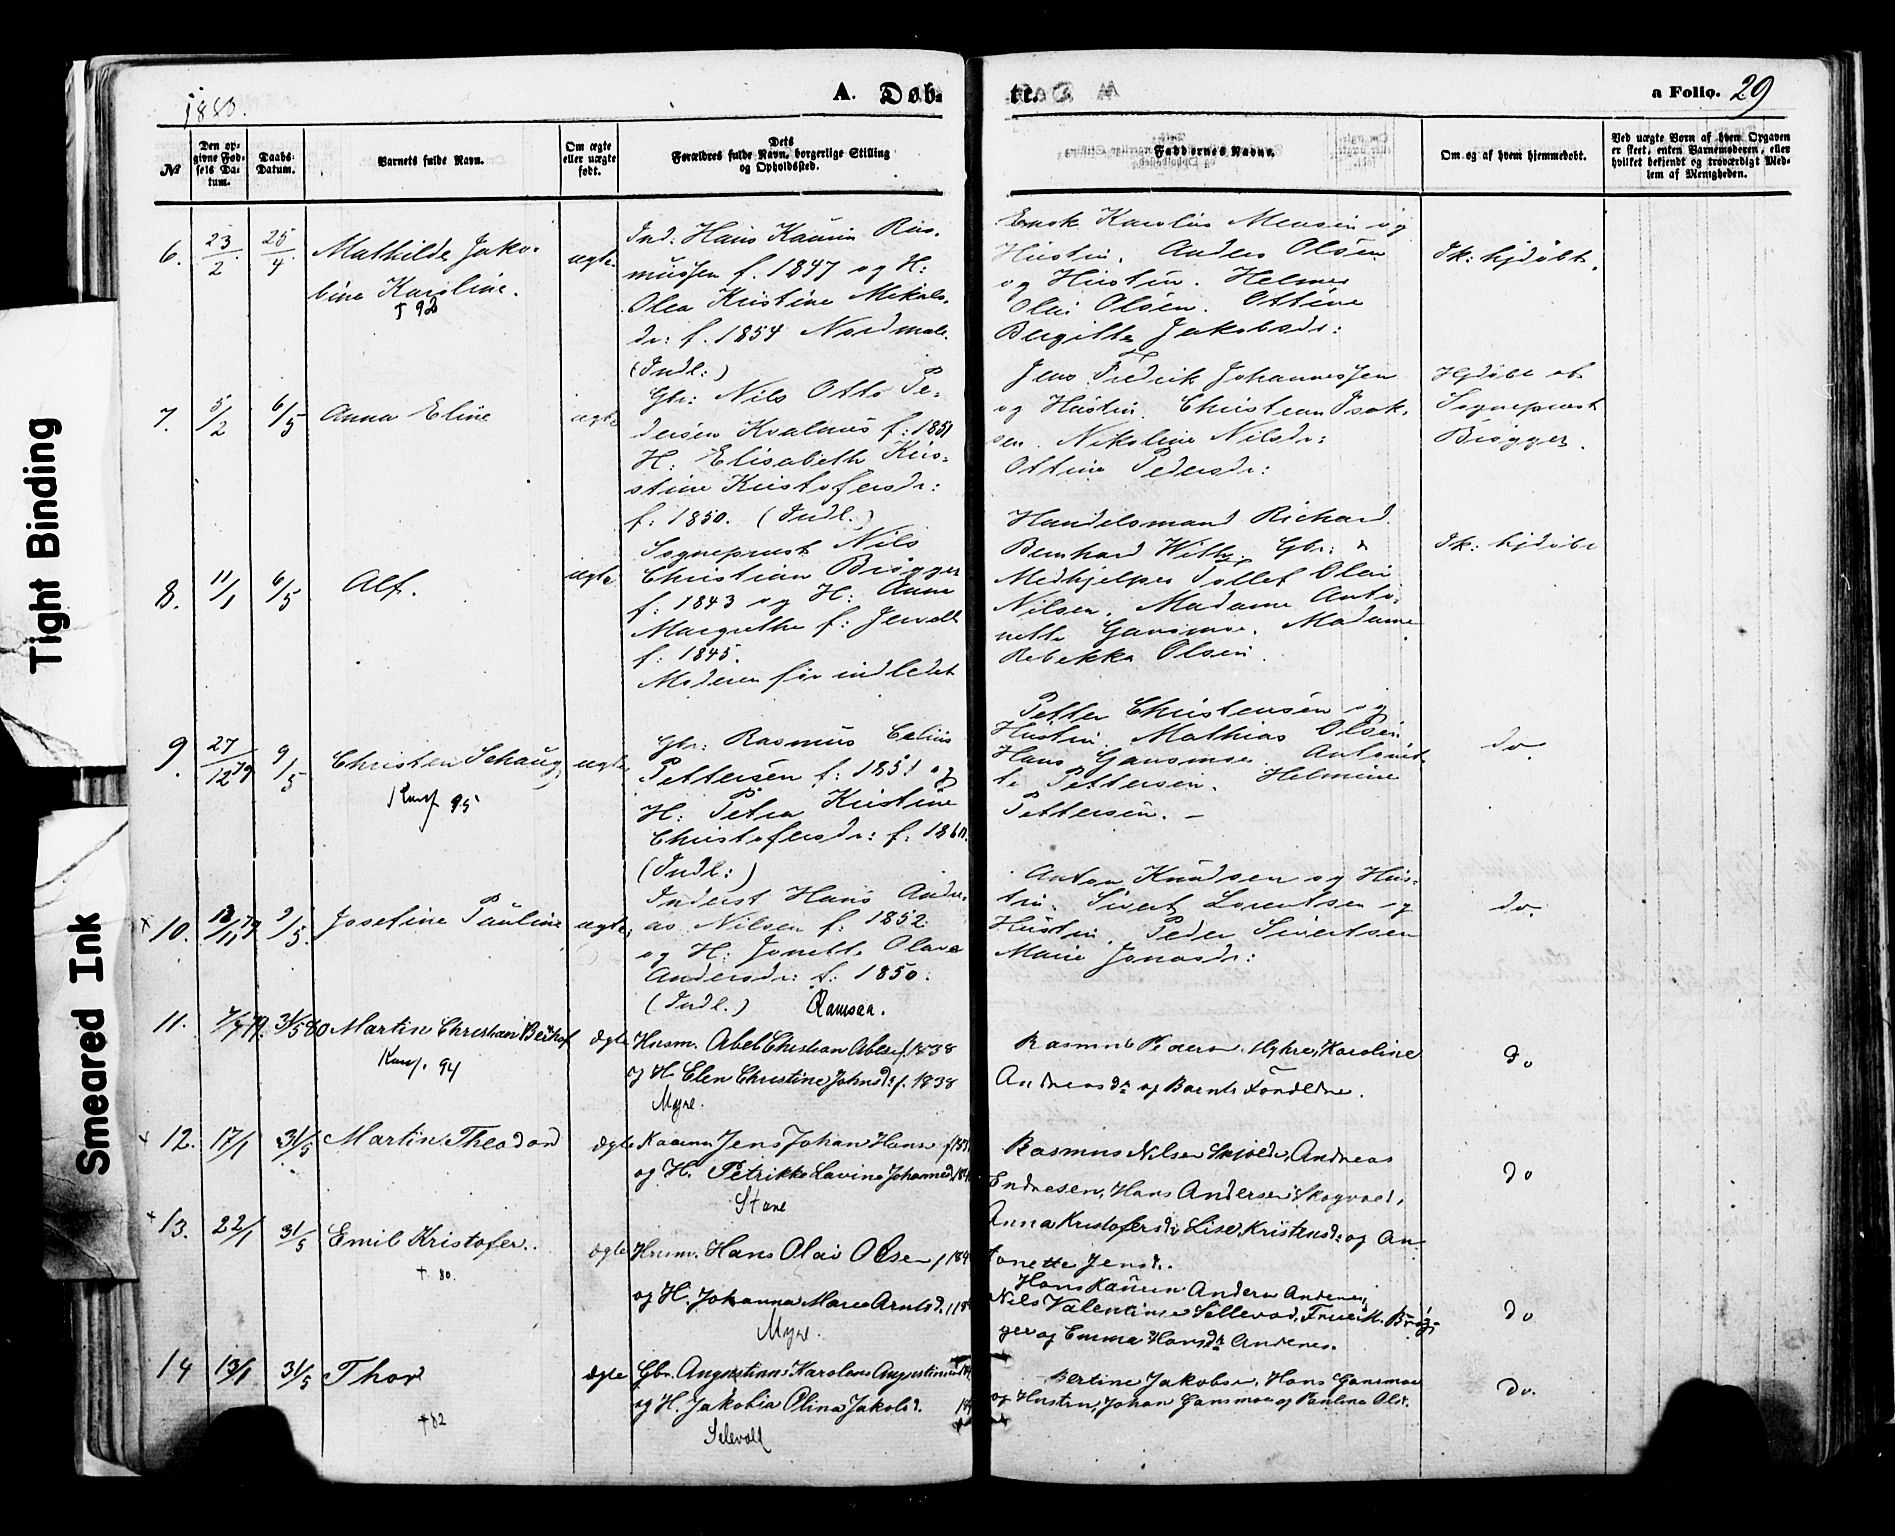 1880.
A. Døb-
te.
a Folio. 29
№
Den op-
givne Fød-
sels Da-
tum.
Daabs-
Datum.
Barnets fulde Navn.
Om ægte
eller uægte
født.
Dets
Forældres fulde Navn, borgerlige Stilling
og Opholdssted.
Faddernes Navne.
Om og af hvem hjemmedøbt.
Ved uægte Børn af hvem Opgaven
er skeet, enten Barnemoderen, eller
hvilket bekjendt og troværdigt Med-
lem af Menigheden.
6. 23/2 25/4 Mathilde Jako-
bine Karoline.
† 92
ægte
Ind: Hans Kaurin Ras-
mussen f. 1847 og H:
Olea Kristine Mikals-
dr: f. 1854 Nordmele.
(Indl:)
Enok Karolius Mensen og
Hustru. Anders Olsen
og Hustru. Helmer
Olai Olsen. Ottine
Bergitte Jakobsdr:
Ik: hjdøbt.
7. 5/2 6/5 Anna Eline
ægte
Gbr: Nils Otto Pe-
dersen Kvalnes f: 1851
H: Elisabeth Kris-
stine Kristofersdr:
f: 1850. (Indl.)
Jens Fredrik Johannessen
og Hustru. Christian Isak-
sen. Nikoline Nilsdr:
Ottine Pedersdr:
Hjdøbt af
Sogneprest
Brøgger.
8. 11/1 6/5 Alf.
ægte
Sogneprest Nils
Christian Brøgger
f: 1843 og H: Anne
Margrethe f: Jervell
f: 1845.
Moderen før indledet
Handelsmand Richard
Bernhard With. Gbr: &
Medhjelper Tollef Olai
Nilsen. Madame Anto-
nette Gansmoe. Madame
Rebekka Olsen.
Ik: hjdøbt
9. 27/12 79 9/5 Christen Schaug,
Konf 95
ægte
Gbr: Rasmus Celius
Pettersen f: 1851 og
H: Petra Kristine
Christofersdr: f. 1860.
(Indl:)
Petter Christensen og
Hustru. Mathias Olsen
Hans Gansmoe. Antonet-
te Pettersen. Helmine
Pettersen. –
do.
× 10. 13/11 79 9/5. Josefine Pauline
ægte,
Inderst Hans Andre-
as Nilsen f: 1852.
og H: Jonette Olava
Andersdr: f: 1850.
(Indl.) Ramsaa.
Anton Knudsen og Hus-
tru. Sivert Lorentsen og
Hustru. Peder Sivertsen
Marie Jonasdr:
do.
11. 7/7 79. 31/5 80 Martin Christian Berhof
Konf. 94
Ægte
Husm. Abel Christian Abels f. 1838
og H. Elen Christine Johnsdr f. 1838
Myre.
Rasmus Pedersen Myhre, Karoline
Andreasdr og Barnets Forældre.
do
× 12. 17/1 31/5 Martin Theodor
Ægte
Jens Johan Hansen
og H. Petrikke Lavina
Stave
Rasmus Nilsen Andreas
Endresen, Hans Andersen Skogvold,
Anna Kristofersdr, Lise Kristensdr og An-
tonette Jensdr.
do
× 13. 22/1 31/5 Emil Kristofer..
† 80.
ægte
Husm. Hans Olai Olsen
og H. Johanna Marie Arntsd.
Myre.
Hans Kaurin Andersen Andenes,
Nils Valentinsen Sellevold, Brøg-
ger og Emma Hansdr Andenes.
do
14 13/1 31/5 Thor
† 82
ægte
Gbr. Augustinus Karolius Augustinus
og H. Jakobia Olina Jakobsd.
Selevold
Bertine Jakobsen, Hans Gansmoe
og Hustru, Johan Gansmoe og Paulina Olsd.
do.
Tight Binding
Smeared Ink